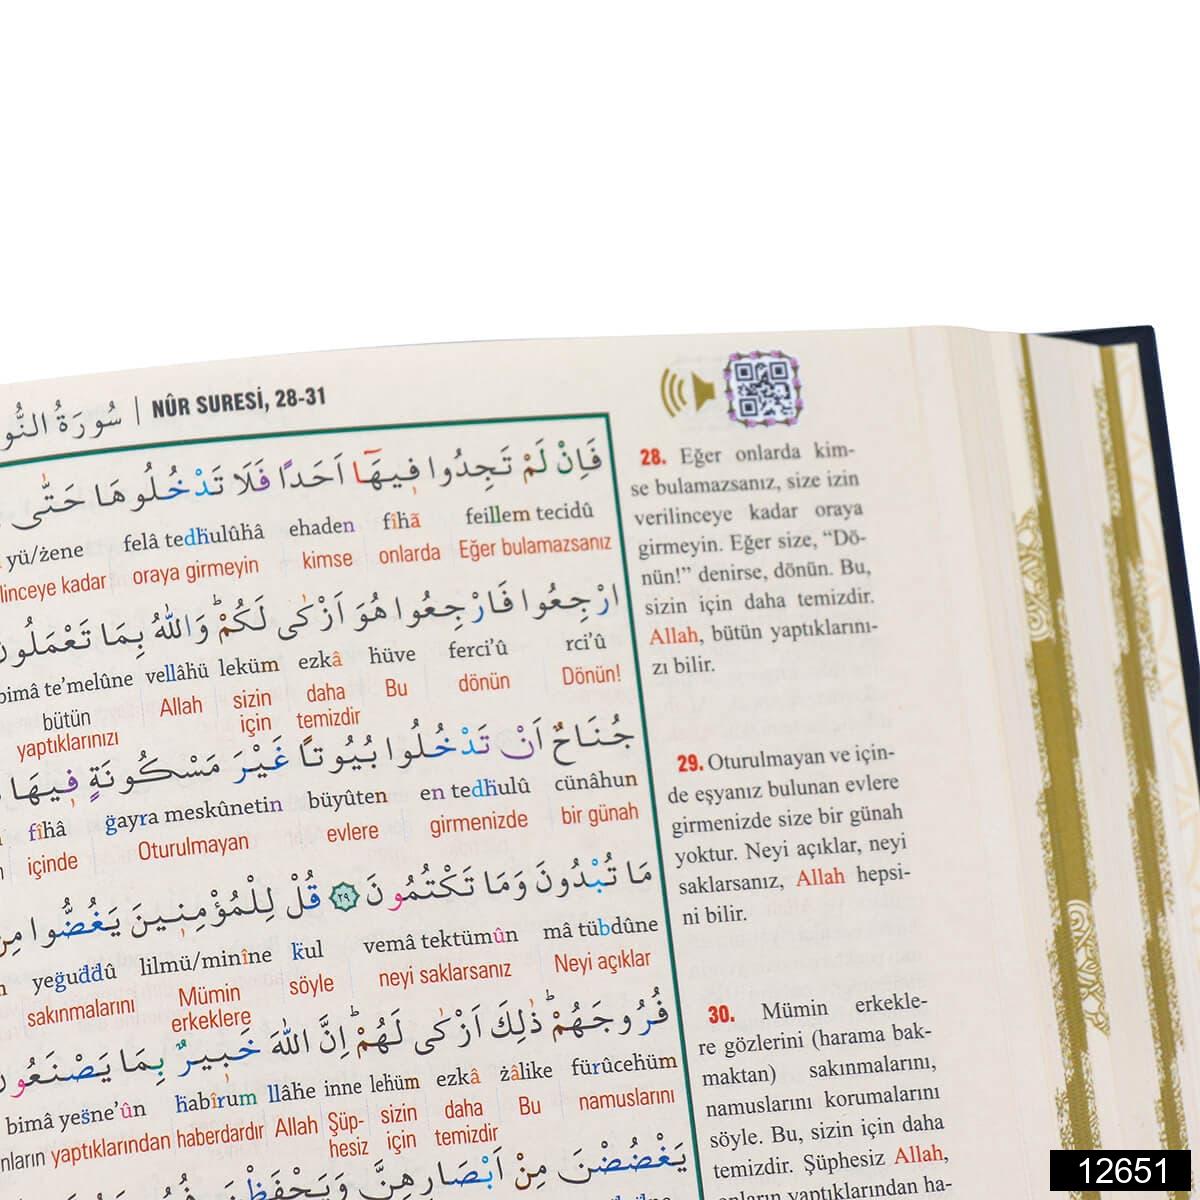 سُورَةُ النُّو | NÛR SURESİ, 28-31
فَاِنْ لَمْ تَجِدُوا فٖيهَٓا اَحَدًا فَلَا تَدْخُلُوهَا حَتّٰى
feillem tecidû fîhâ ehaden felâ tedhulûhâ yü/zene
Eğer bulamazsanız onlarda kimse oraya girmeyin linceye kadar
ارْجِعُوا فَارْجِعُوا هُوَ اَزْكٰى لَكُمْ وَاللّٰهُ بِمَا تَعْمَلُونَ
rci'û ferci'û hüve ezkâ leküm vellâhü bimâ te'melûne
Dönün! dönün Bu daha temizdir sizin için Allah bütün yaptıklarınızı
جُنَاحٌ اَنْ تَدْخُلُوا بُيُوتًا غَيْرَ مَسْكُونَةٍ فٖيهَا
cünâhun en tedhulû büyûten ğayra meskûnetin fîhâ
bir günah girmenizde evlere Oturulmayan içinde
مَا تُبْدُونَ وَمَا تَكْتُمُونَ ٢٩ قُلْ لِلْمُؤْمِنٖينَ يَغُضُّوا مِنْ
mâ tübdûne vemâ tektümûn kul lilmü/minîne yeğuddû
Neyi açıklar neyi saklarsanız söyle Mümin erkeklere sakınmalarını
فُرُوجَهُمْ ذٰلِكَ اَزْكٰى لَهُمْ اِنَّ اللّٰهَ خَبٖيرٌ بِمَا يَصْنَعُونَ
fürûcehüm zâlike ezkâ lehüm inne llâhe habîrum bimâ yesne'ûn
namuslarını Bu daha temizdir sizin için Şüp-hesiz Allah haberdardır yaptıklarından nların
يَغْضُضْنَ مِنْ اَبْصَارِهِنَّ وَيَحْفَظْنَ
28. Eğer onlarda kim-
se bulamazsanız, size izin
verilinceye kadar oraya
girmeyin. Eğer size, “Dö-
nün!” denirse, dönün. Bu,
sizin için daha temizdir.
Allah, bütün yaptıklarını-
zı bilir.
29. Oturulmayan ve için-
de eşyanız bulunan evlere
girmenizde size bir günah
yoktur. Neyi açıklar, neyi
saklarsanız, Allah hepsi-
ni bilir.
30. Mümin erkekle-
re gözlerini (harama bak-
maktan) sakınmalarını,
namuslarını korumalarını
söyle. Bu, sizin için daha
temizdir. Şüphesiz Allah,
onların yaptıklarından ha-
12651